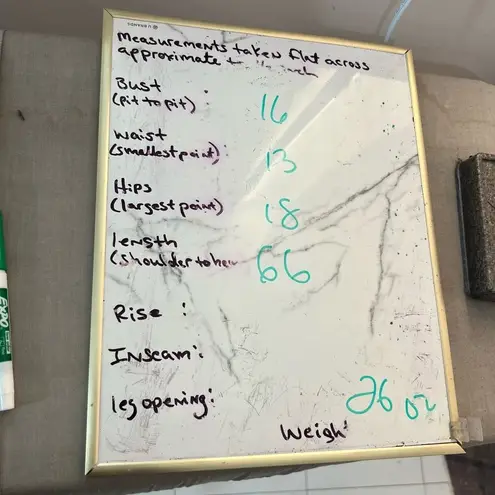 measurements taken flat across
approximate
Bust
(pit to pit) : 16
waist
(smallest point) : 13
Hips
(largest point) 18
length
(shoulder to hem 66
Rise :
Inseam:
leg opening:
26 oz
Weigh
EXPO